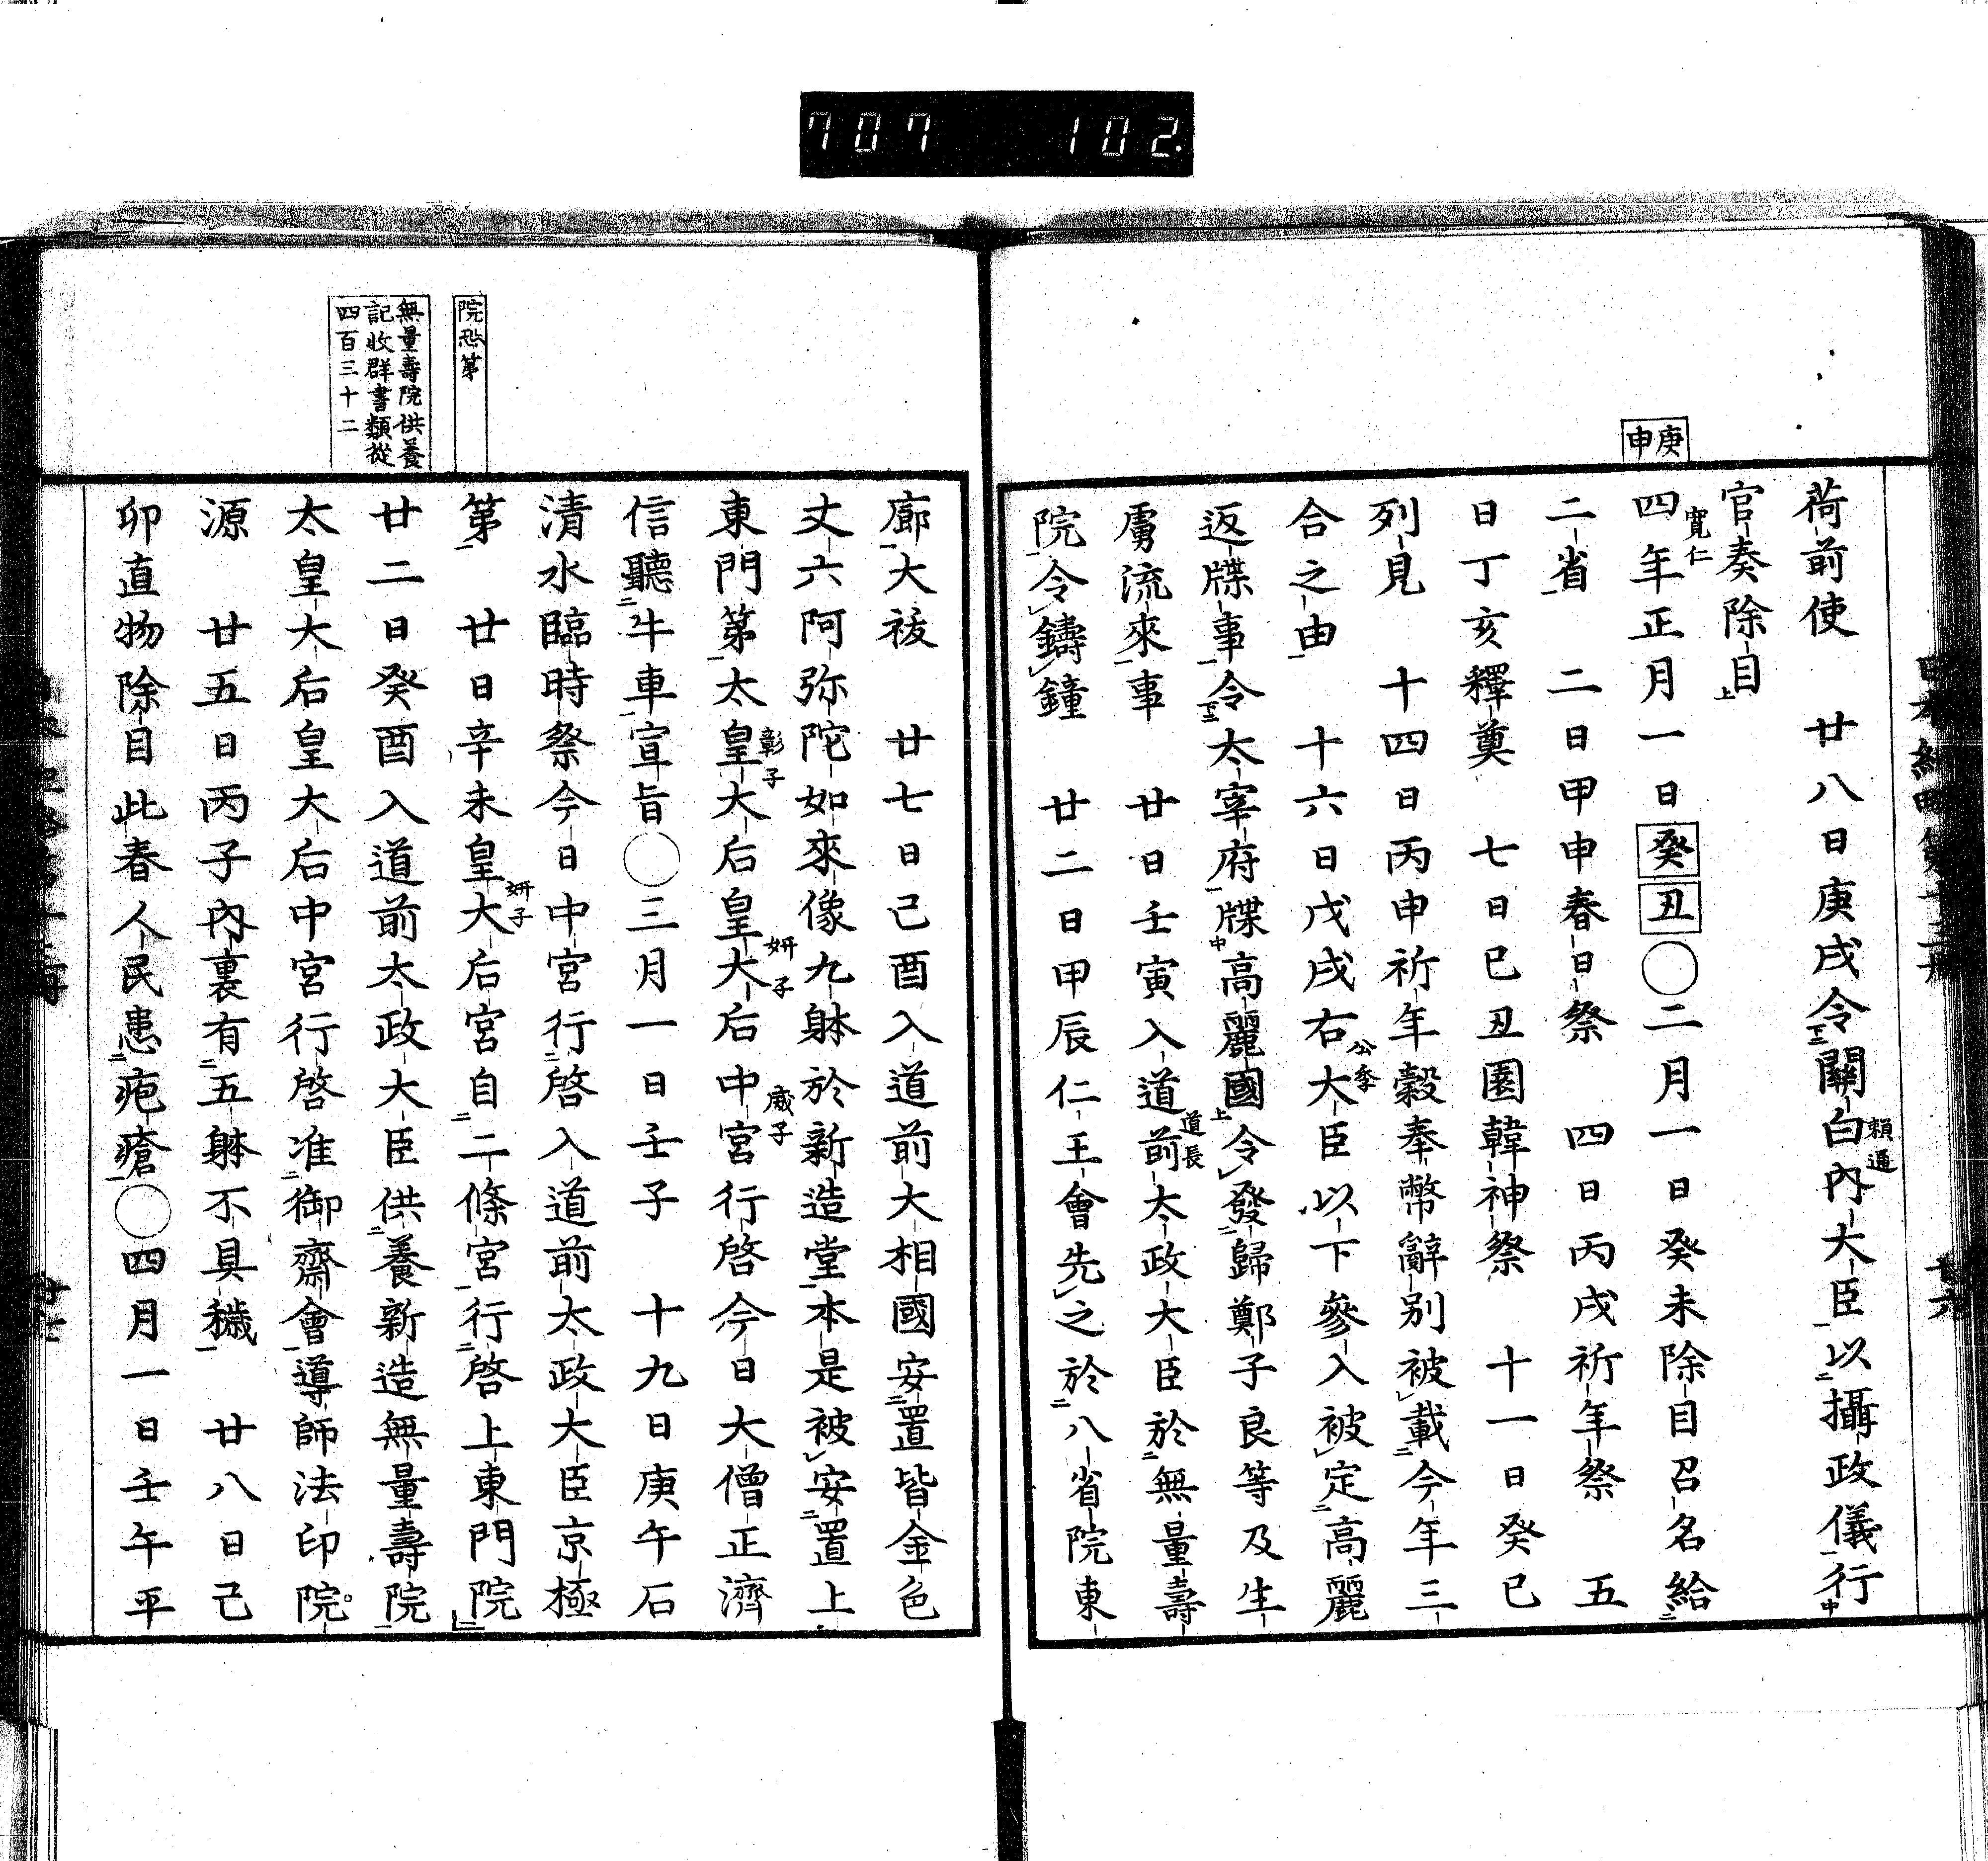 707 102.
庚申
荷前使　廿八日庚戌令關白內大臣以攝政儀行
頼通
官奏除目
寛仁
四年正月一日癸丑〇二月一日癸未除目召名給
二省　二日甲申春日祭　四日丙戌祈年祭　五
日丁亥釋奠　七日己丑園韓神祭　十一日癸巳
列見　十四日丙申祈年穀奉幣辭別被載今年三
合之由　十六日戊戌右大臣以下參入被定高麗
公季
返牒事令太宰府牒高麗國令發歸鄭子良等及生
虜流來事　廿日壬寅入道前太政大臣於無量壽
道長
院令鑄鐘　廿二日甲辰仁王會先之於八省院東
院恐第
無量壽院供養
記收群書類從
四百三十二
廊大祓　廿七日己酉入道前大相國安置皆金色
丈六阿弥陀如來像九躰於新造堂本是被安置上
東門第太皇大后皇大后中宮行啓今日大僧正濟
彰子
妍子
威子
信聽牛車宣旨〇三月一日壬子　十九日庚午石
清水臨時祭今日中宮行啓入道前太政大臣京極
第　廿日辛未皇大后宮自二條宮行啓上東門院
妍子
廿二日癸酉入道前太政大臣供養新造無量壽院
太皇大后皇大后中宮行啓准御齋會導師法印院
源　廿五日丙子內裏有五躰不具穢　廿八日己
卯直物除目此春人民患疱瘡〇四月一日壬午平